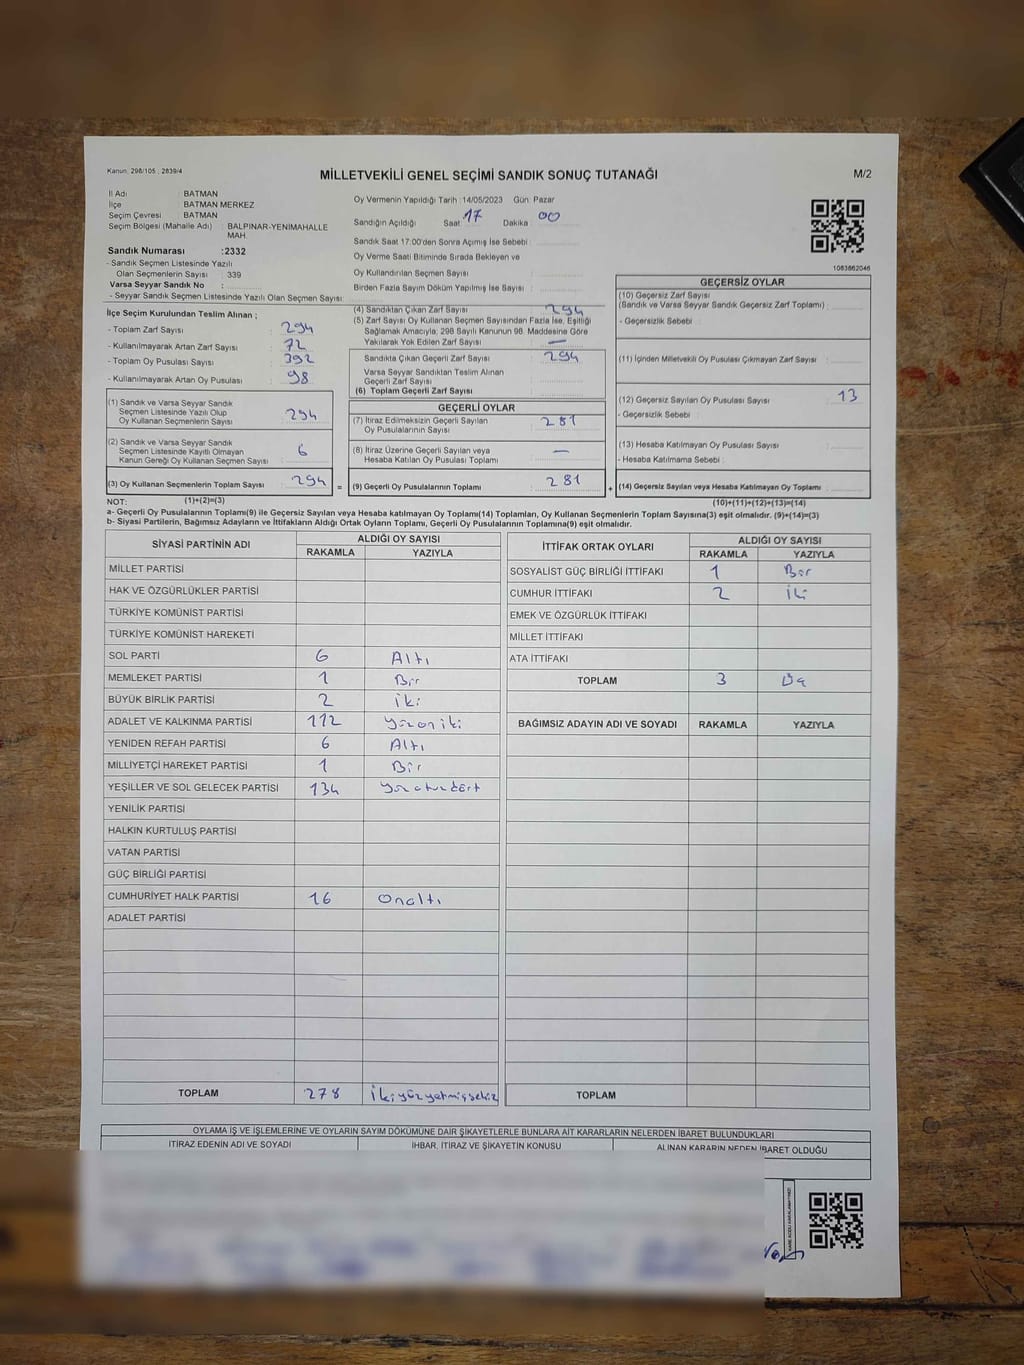 Kanun: 298/105 , 2839/4
MİLLETVEKİLİ GENEL SEÇİMİ SANDIK SONUÇ TUTANAĞI
M/2
İl Adı : BATMAN
İlçe : BATMAN MERKEZ
Seçim Çevresi : BATMAN
Seçim Bölgesi (Mahalle Adı) : BALPINAR-YENİMAHALLE MAH.
Sandık Numarası :2332
- Sandık Seçmen Listesinde Yazılı
Olan Seçmenlerin Sayısı : 339
Varsa Seyyar Sandık No :
- Seyyar Sandık Seçmen Listesinde Yazılı Olan Seçmen Sayısı:
Oy Vermenin Yapıldığı Tarih : 14/05/2023 Gün: Pazar
Sandığın Açıldığı Saat : 17 Dakika : 00
Sandık Saat 17:00'den Sonra Açımış İse Sebebi :
Oy Verme Saati Bitiminde Sırada Bekleyen ve
Oy Kullandırılan Seçmen Sayısı :
Birden Fazla Sayım Döküm Yapılmış İse Sayısı :
1083662046
İlçe Seçim Kurulundan Teslim Alınan ;
- Toplam Zarf Sayısı : 294
- Kullanılmayarak Artan Zarf Sayısı : 72
- Toplam Oy Pusulası Sayısı : 392
- Kullanılmayarak Artan Oy Pusulası : 98
(1) Sandık ve Varsa Seyyar Sandık
Seçmen Listesinde Yazılı Olup
Oy Kullanan Seçmenlerin Sayısı : 294
(2) Sandık ve Varsa Seyyar Sandık
Seçmen Listesinde Kayıtlı Olmayan
Kanun Gereği Oy Kullanan Seçmen Sayısı : 6
(3) Oy Kullanan Seçmenlerin Toplam Sayısı : 294 =
(4) Sandıktan Çıkan Zarf Sayısı : 294
(5) Zarf Sayısı Oy Kullanan Seçmen Sayısından Fazla İse, Eşitliği
Sağlamak Amacıyla, 298 Sayılı Kanunun 98. Maddesine Göre
Yakılarak Yok Edilen Zarf Sayısı : —
Sandıkta Çıkan Geçerli Zarf Sayısı : 294
Varsa Seyyar Sandıktan Teslim Alınan
Geçerli Zarf Sayısı :
(6) Toplam Geçerli Zarf Sayısı :
GEÇERLİ OYLAR
(7) İtiraz Edilmeksizin Geçerli Sayılan
Oy Pusulalarının Sayısı : 281
(8) İtiraz Üzerine Geçerli Sayılan veya
Hesaba Katılan Oy Pusulası Toplamı : —
(9) Geçerli Oy Pusulalarının Toplamı : 281 +
GEÇERSİZ OYLAR
(10) Geçersiz Zarf Sayısı
(Sandık ve Varsa Seyyar Sandık Geçersiz Zarf Toplamı) :
- Geçersizlik Sebebi :
(11) İçinden Milletvekili Oy Pusulası Çıkmayan Zarf Sayısı :
(12) Geçersiz Sayılan Oy Pusulası Sayısı : 13
- Geçersizlik Sebebi :
(13) Hesaba Katılmayan Oy Pusulası Sayısı :
- Hesaba Katılmama Sebebi :
(14) Geçersiz Sayılan veya Hesaba Katılmayan Oy Toplamı :
NOT: (1)+(2)=(3)
(10)+(11)+(12)+(13)=(14)
a- Geçerli Oy Pusulalarının Toplamı(9) ile Geçersiz Sayılan veya Hesaba katılmayan Oy Toplamı(14) Toplamları, Oy Kullanan Seçmenlerin Toplam Sayısına(3) eşit olmalıdır. (9)+(14)=(3)
b- Siyasi Partilerin, Bağımsız Adayların ve İttifakların Aldığı Ortak Oyların Toplamı, Geçerli Oy Pusulalarının Toplamına(9) eşit olmalıdır.
SİYASİ PARTİNİN ADI ALDIĞI OY SAYISI
RAKAMLA YAZIYLA
MİLLET PARTİSİ
HAK VE ÖZGÜRLÜKLER PARTİSİ
TÜRKİYE KOMÜNİST PARTİSİ
TÜRKİYE KOMÜNİST HAREKETİ
SOL PARTİ 6 Altı
MEMLEKET PARTİSİ 1 Bir
BÜYÜK BİRLİK PARTİSİ 2 iki
ADALET VE KALKINMA PARTİSİ 112 Yüzoniki
YENİDEN REFAH PARTİSİ 6 Altı
MİLLİYETÇİ HAREKET PARTİSİ 1 Bir
YEŞİLLER VE SOL GELECEK PARTİSİ 134 Yüzotuzdört
YENİLİK PARTİSİ
HALKIN KURTULUŞ PARTİSİ
VATAN PARTİSİ
GÜÇ BİRLİĞİ PARTİSİ
CUMHURİYET HALK PARTİSİ 16 Onaltı
ADALET PARTİSİ
TOPLAM 278 İkiyüzyetmişsekiz
İTTİFAK ORTAK OYLARI ALDIĞI OY SAYISI
RAKAMLA YAZIYLA
SOSYALİST GÜÇ BİRLİĞİ İTTİFAKI 1 Bir
CUMHUR İTTİFAKI 2 iki
EMEK VE ÖZGÜRLÜK İTTİFAKI
MİLLET İTTİFAKI
ATA İTTİFAKI
TOPLAM 3 Üç
BAĞIMSIZ ADAYIN ADI VE SOYADI RAKAMLA YAZIYLA
TOPLAM
OYLAMA İŞ VE İŞLEMLERİNE VE OYLARIN SAYIM DÖKÜMÜNE DAİR ŞİKAYETLERLE BUNLARA AİT KARARLARIN NELERDEN İBARET BULUNDUKLARI
İTİRAZ EDENİN ADI VE SOYADI İHBAR, İTİRAZ VE ŞİKAYETİN KONUSU ALINAN KARARIN NEDEN İBARET OLDUĞU